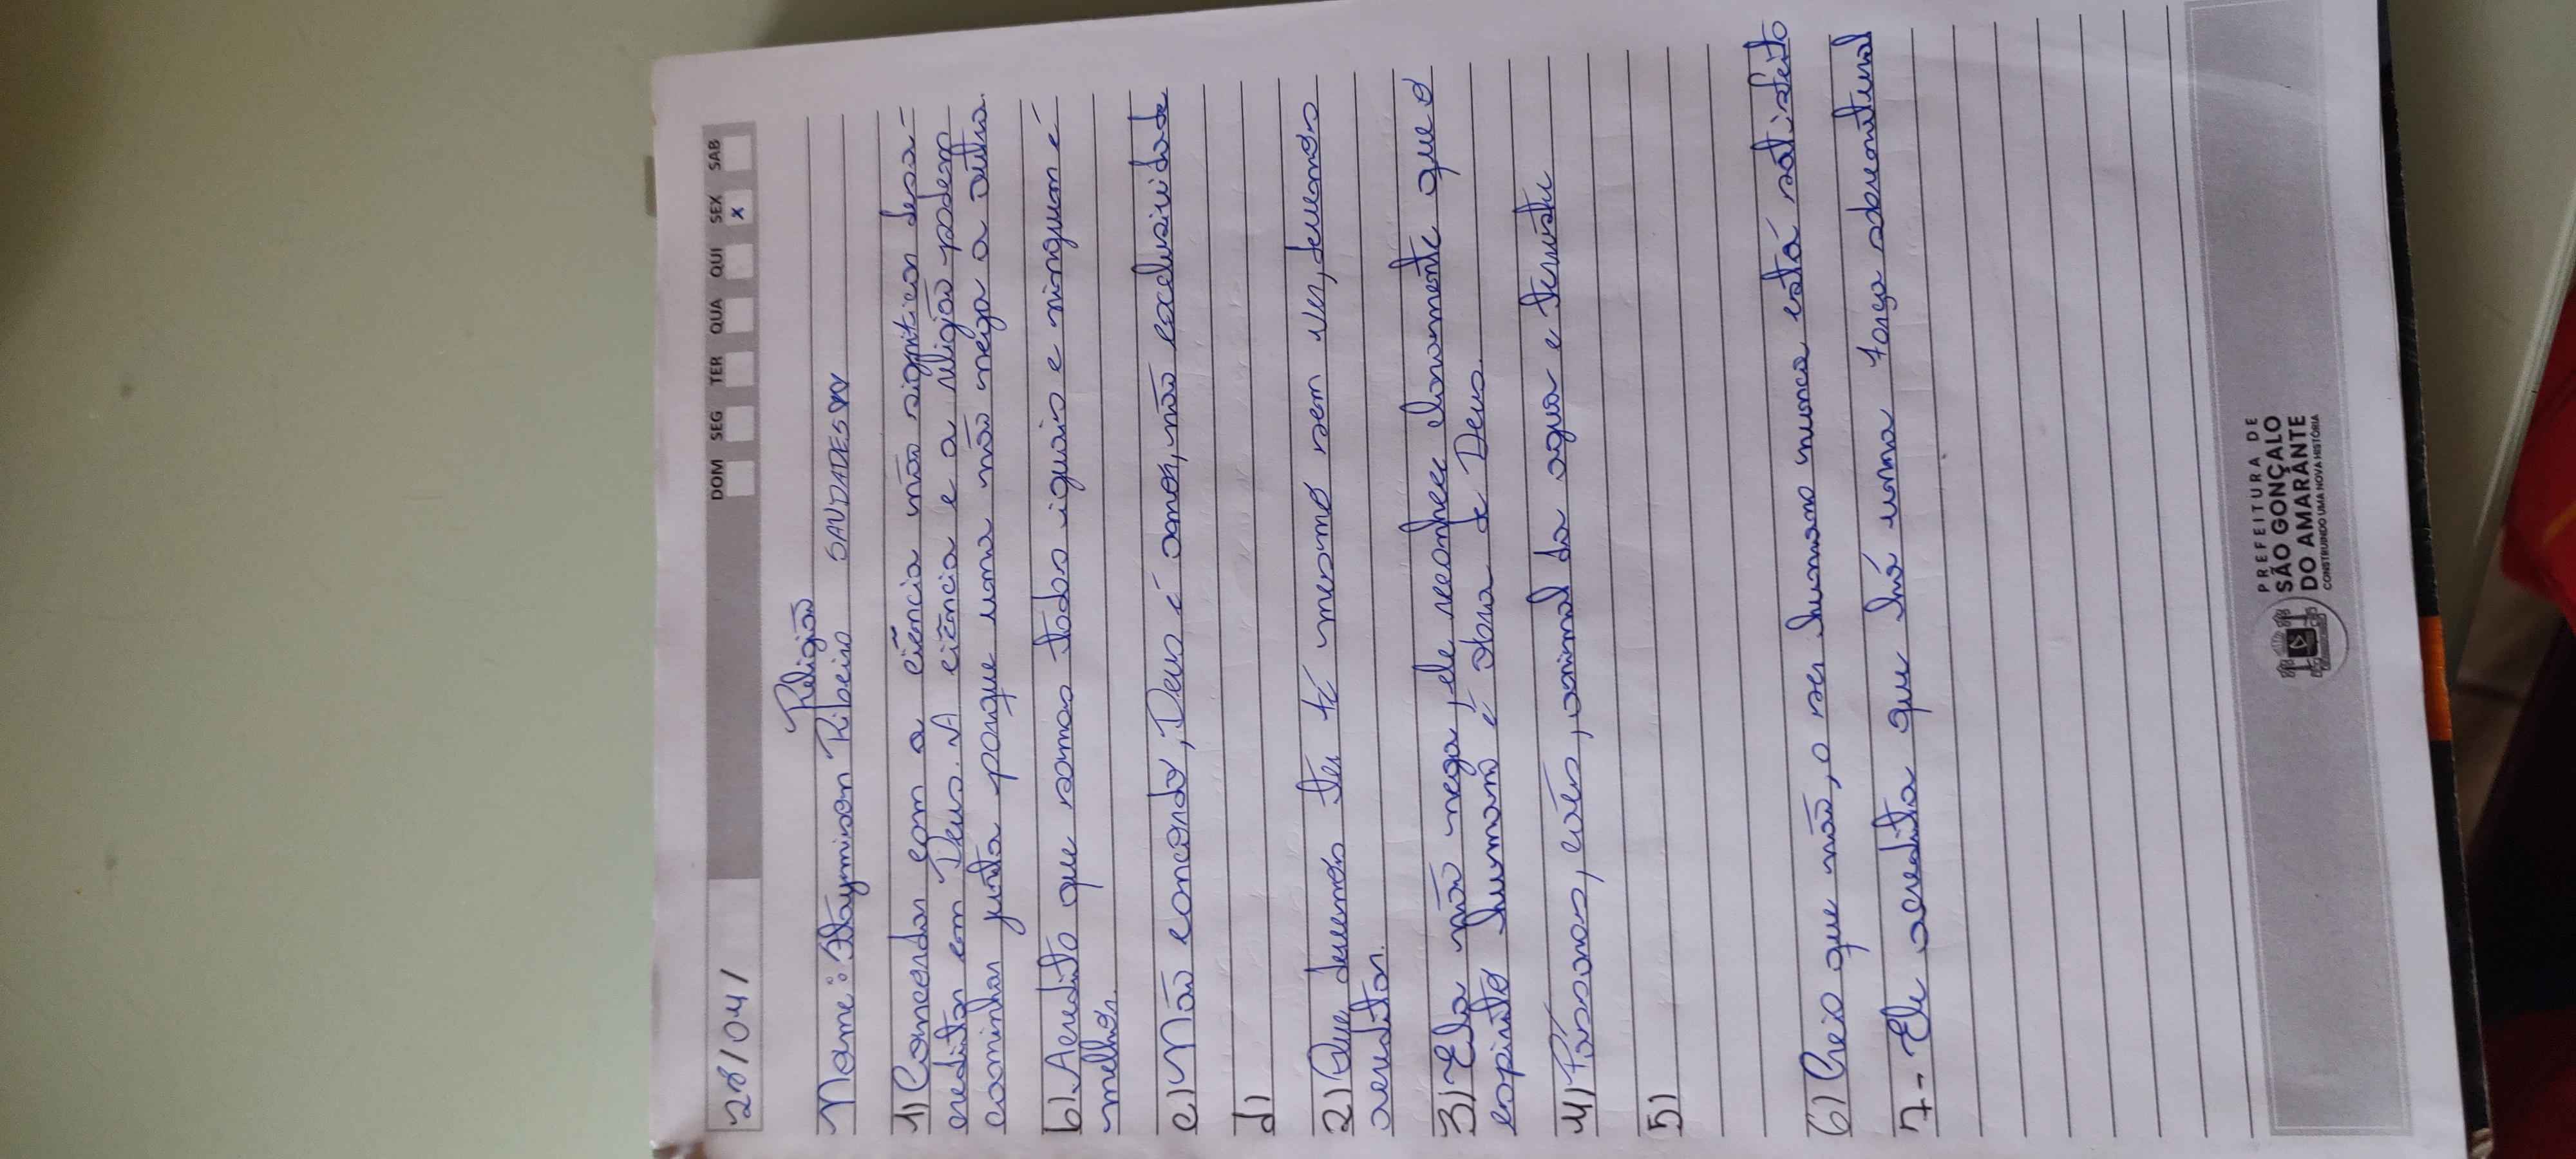 28/04/
DOM SEG TER QUA QUI SEX SAB
x
Religião
Nome: Ribeiro SAUDADES
1) Concordar com a ciência não significar desa-
creditar em Deus. A ciência e a religião podem
caminhar junta porque uma não nega a outra.
b) Acredito que somos todos iguais e ninguem é
melhor.
c) Não concordo, Deus é amor, não exclusividade
d)
2) Que devemos ter fé mesmo sem ver, devemos
acreditar.
3) Ela não nega, ele reconhece claramente que o
espirito humano é obra de Deus.
4) Pássaros, cães, animal da agua e terrestre
5)
6) Creio que não, o ser humano nunca está satisfeito
7- Ele acredita que há uma força sobrenatural
PREFEITURA DE
SÃO GONÇALO
DO AMARANTE
CONSTRUINDO UMA NOVA HISTÓRIA